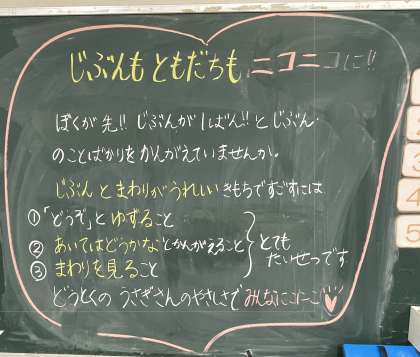 じぶんも ともだちも ニコニコに!!
ぼくが 先!! じぶんが 1ばん!! と じぶん
のことばかりをかんがえていませんか。
じぶん とまわりがうれしい きもちですごすには
①「どうぞ」と ゆずること
② あいてはどうかな とかんがえること
③ まわりを見ること
とても
たいせつです
どうとくの うさぎさんのやさしさで みんなにこにこ
2
3
4
5